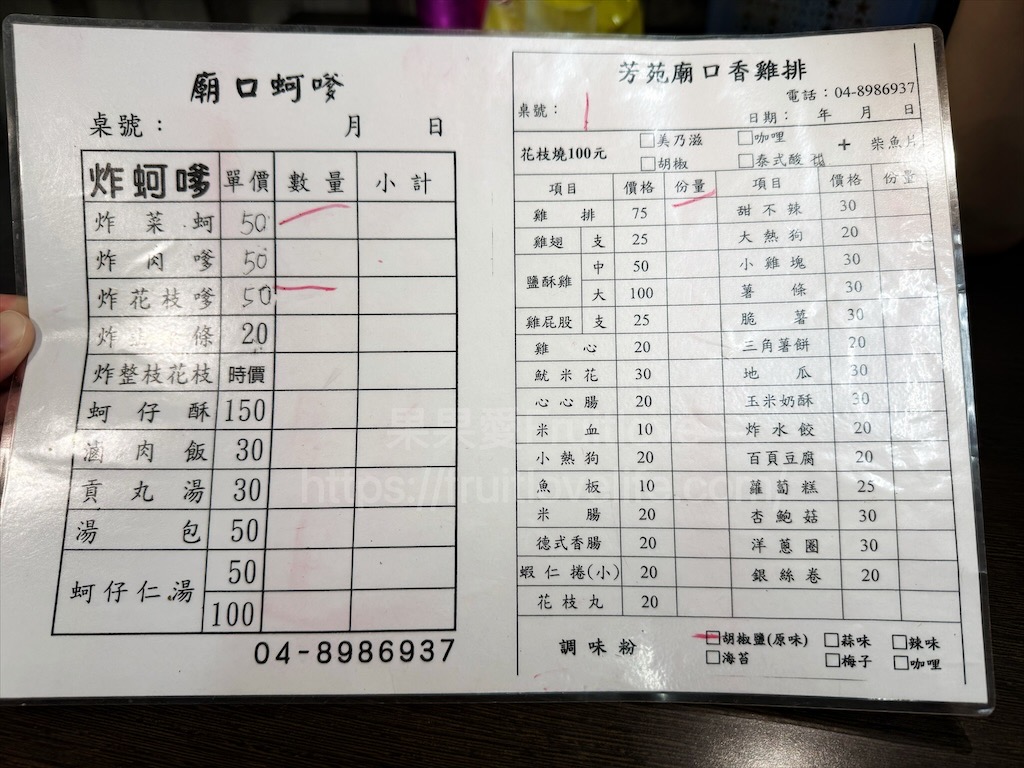 廟口蚵嗲
桌號： 月 日
炸蚵嗲 單價 數量 小計
炸菜蚵 50
炸肉嗲 50
炸花枝嗲 50
炸 條 20
炸整枝花枝 時價
蚵仔酥 150
滷肉飯 30
貢丸湯 30
湯包 50
蚵仔仁湯 50
100
04-8986937
芳苑廟口香雞排
電話：04-8986937
桌號： 日期： 年 月 日
花枝燒100元 □美乃滋 □咖哩 + 柴魚片
□胡椒 □泰式酸
項目 價格 份量 項目 價格 份量
雞排 75 甜不辣 30
雞翅 支 25 大熱狗 20
鹽酥雞 中 50 小雞塊 30
大 100 薯條 30
雞屁股 支 25 脆薯 30
雞心 20 三角薯餅 20
魷米花 30 地瓜 30
心心腸 20 玉米奶酥 30
米血 10 炸水餃 20
小熱狗 20 百頁豆腐 20
魚板 10 蘿蔔糕 25
米腸 20 杏鮑菇 30
德式香腸 20 洋蔥圈 30
蝦仁捲(小) 20 銀絲卷 20
花枝丸 20
調味粉 □胡椒鹽(原味) □蒜味 □辣味
□海苔 □梅子 □咖哩